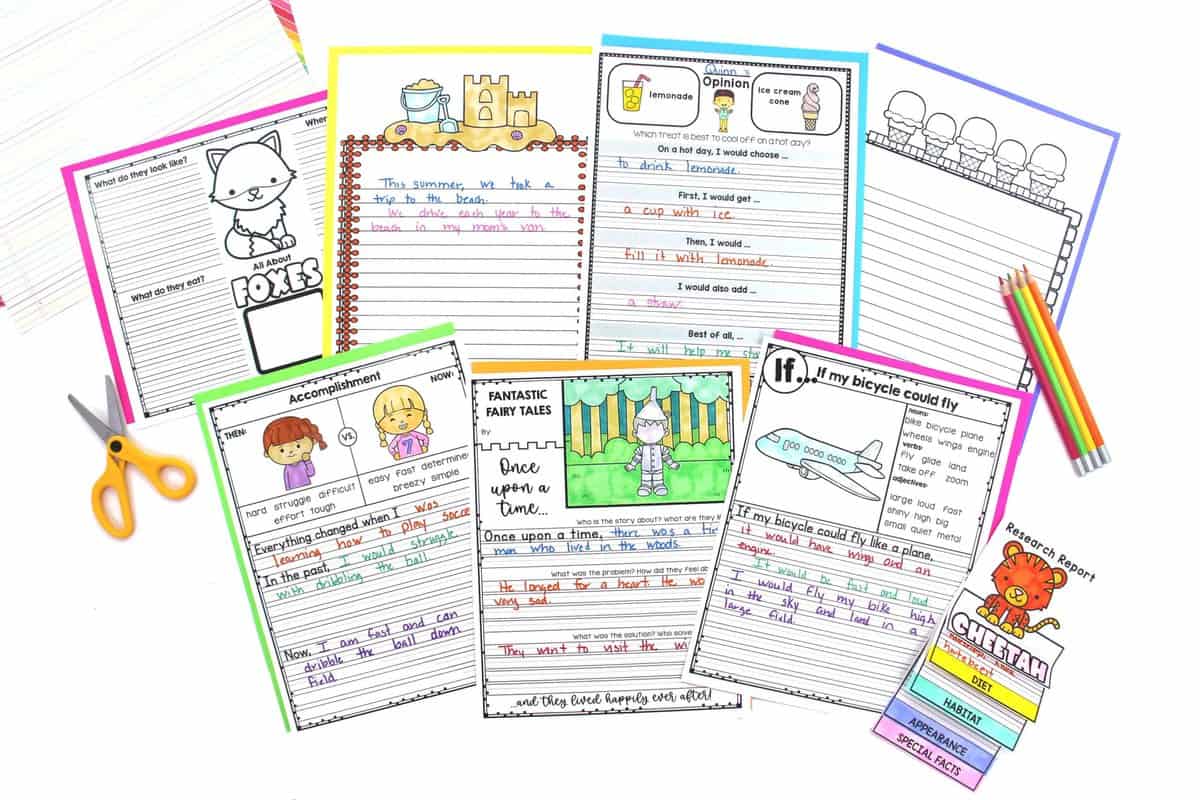 What do they look like?
What do they eat?
All About
FOXES
This summer, we took a
trip to the beach.
We drive each year to the
beach in my mom's van.
Quinn's
Opinion
lemonade
ice cream
cone
Which treat is best to cool off on a hot day?
On a hot day, I would choose ...
to drink lemonade.
First, I would get ...
a cup with ice.
Then, I would ...
fill it with lemonade.
I would also add ...
a straw.
Best of all, ...
It will help me
Accomplishment
THEN:
VS.
NOW:
hard struggle difficult
effort tough
easy fast determine
breezy simple
Everything changed when I was
learning how to play socce
In the past, I would struggle
with dribbling the ball.
Now, I am fast and can
dribble the ball down
field.
FANTASTIC
FAIRY TALES
By
Once
upon a
time...
Who is the story about? What are they
Once upon a time, there was a
man who lived in the woods.
What was the problem? How did they feel
He longed for a heart. He
very sad.
What was the solution? Who
They went to visit the
...and they lived happily ever after!
If...
If my bicycle could fly
nouns:
bike bicycle plane
wheels wings engine
verbs:
fly glide land
take off zoom
adjectives:
large loud fast
shiny high big
small quiet metal
If my bicycle could fly like a plane,
it would have wings and an
engine.
It would be fast and loud.
I would fly my bike high
in the sky and land in a
large field.
Research Report
CHEETAH
hartebeest
DIET
HABITAT
APPEARANCE
SPECIAL FACTS